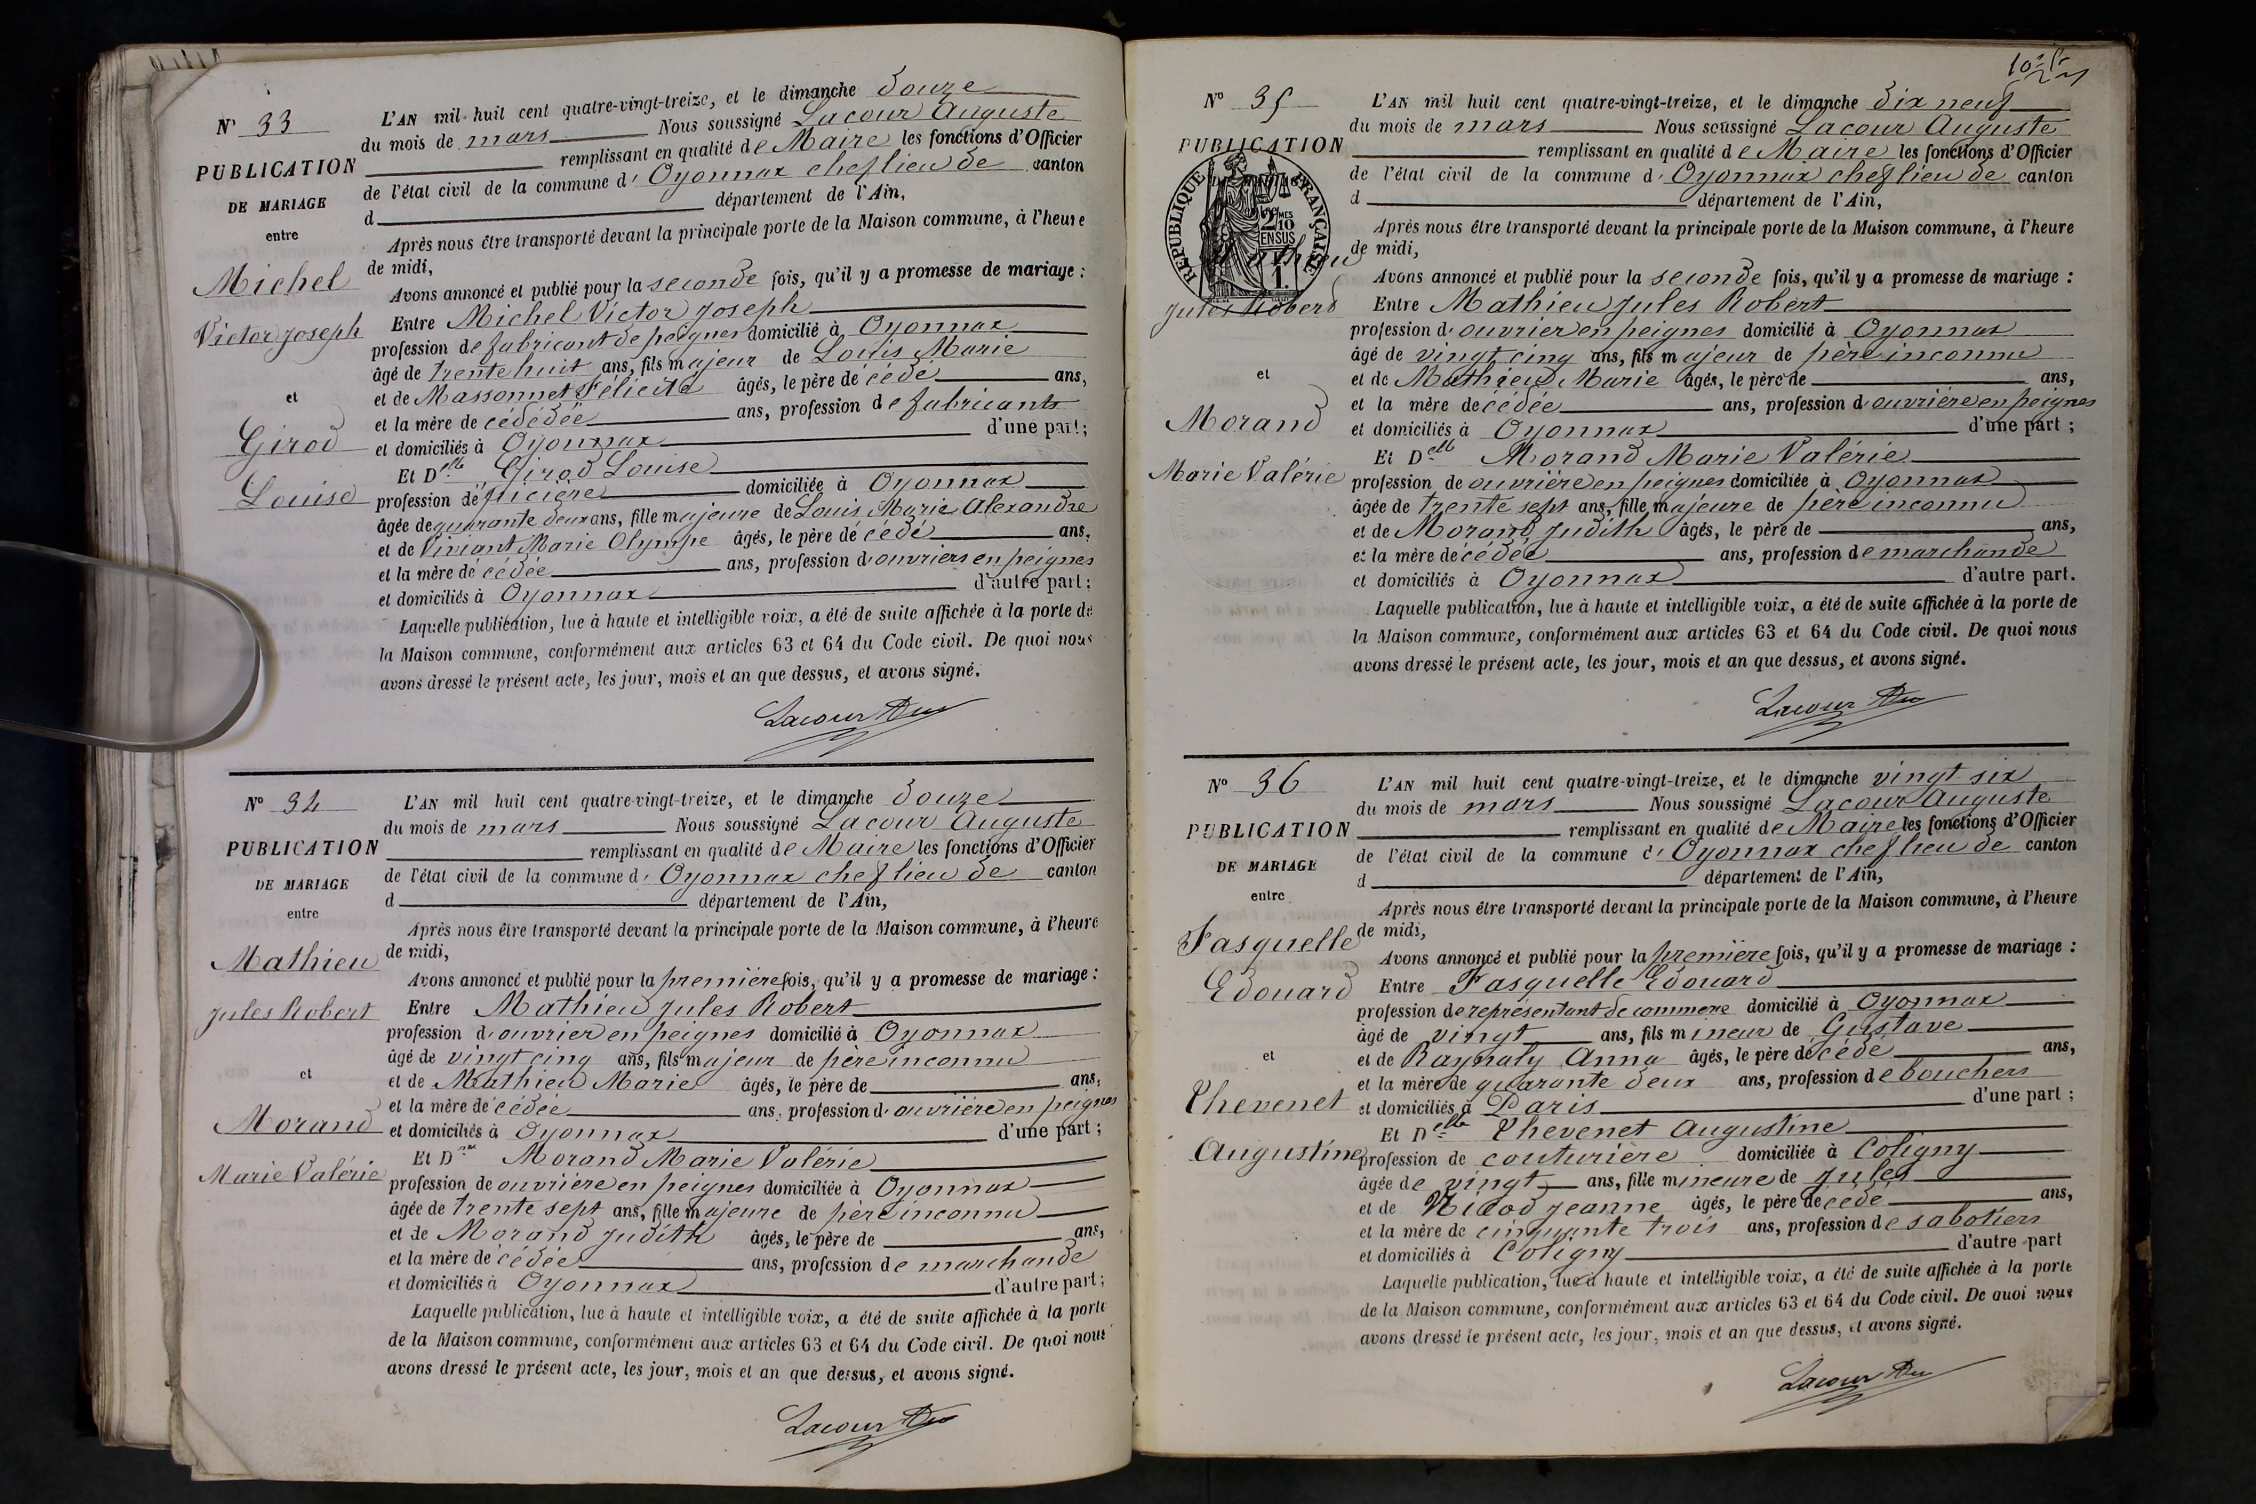 N° 33
PUBLICATION
DE MARIAGE
entre
Michel
Victor Joseph
et
Girod
Louise
L'AN mil huit cent quatre-vingt-treize, et le dimanche douze
du mois de mars Nous soussigné Lacour Auguste
remplissant en qualité de Maire les fonctions d'Officier
de l'état civil de la commune d' Oyonnax chef lieu de canton
d département de l'Ain,
Après nous être transporté devant la principale porte de la Maison commune, à l'heure
de midi,
Avons annoncé et publié pour la seconde fois, qu'il y a promesse de mariage :
Entre Michel Victor Joseph
profession de fabricant de peignes domicilié à Oyonnax
âgé de trente huit ans, fils majeur de Louis Marie
et de Massonnet Félicité âgés, le père décédé ans,
et la mère de cédédée ans, profession de fabricants
et domiciliés à Oyonnax d'une part;
Et Delle Girod Louise
profession d'épicière domiciliée à Oyonnax
âgée de quarante deux ans, fille majeure de Louis Marie Alexandre
et de Viviant Marie Olympe âgés, le père décédé ans,
et la mère décédée ans, profession d'ouvriers en peignes
et domiciliés à Oyonnax d'autre part;
Laquelle publication, lue à haute et intelligible voix, a été de suite affichée à la porte de
la Maison commune, conformément aux articles 63 et 64 du Code civil. De quoi nous
avons dressé le présent acte, les jour, mois et an que dessus, et avons signé.
Lacour Aug
N° 34
PUBLICATION
DE MARIAGE
entre
Mathieu
Jules Robert
et
Morand
Marie Valérie
L'AN mil huit cent quatre-vingt-treize, et le dimanche douze
du mois de mars Nous soussigné Lacour Auguste
remplissant en qualité de Maire les fonctions d'Officier
de l'état civil de la commune d' Oyonnax chef lieu de canton
d département de l'Ain,
Après nous être transporté devant la principale porte de la Maison commune, à l'heure
de midi,
Avons annoncé et publié pour la première fois, qu'il y a promesse de mariage :
Entre Mathieu Jules Robert
profession d'ouvrier en peignes domicilié à Oyonnax
âgé de vingt cinq ans, fils majeur de père inconnu
et de Mathieu Marie âgés, le père de ans,
et la mère décédée ans, profession d'ouvrière en peignes
et domiciliés à Oyonnax d'une part;
Et D Morand Marie Valérie
profession de ouvrière en peignes domiciliée à Oyonnax
âgée de trente sept ans, fille majeure de père inconnu
et de Morand Judith âgés, le père de ans,
et la mère décédée ans, profession de marchande
et domiciliés à Oyonnax d'autre part;
Laquelle publication, lue à haute et intelligible voix, a été de suite affichée à la porte
de la Maison commune, conformément aux articles 63 et 64 du Code civil. De quoi nous
avons dressé le présent acte, les jour, mois et an que dessus, et avons signé.
Lacour Aug
N° 35
PUBLICATION
RÉPUBLIQUE FRANÇAISE
2/10 MES
EN SUS
Mathieu
Jules Robert
et
Morand
Marie Valérie
L'AN mil huit cent quatre-vingt-treize, et le dimanche dix neuf
du mois de mars Nous soussigné Lacour Auguste
remplissant en qualité de Maire les fonctions d'Officier
de l'état civil de la commune d' Oyonnax chef lieu de canton
d département de l'Ain,
Après nous être transporté devant la principale porte de la Maison commune, à l'heure
de midi,
Avons annoncé et publié pour la seconde fois, qu'il y a promesse de mariage :
Entre Mathieu Jules Robert
profession d'ouvrier en peignes domicilié à Oyonnax
âgé de vingt cinq ans, fils majeur de père inconnu
et de Mathieu Marie âgés, le père de ans,
et la mère décédée ans, profession d'ouvrière en peignes
et domiciliés à Oyonnax d'une part;
Et Delle Morand Marie Valérie
profession de ouvrière en peignes domiciliée à Oyonnax
âgée de trente sept ans, fille majeure de père inconnu
et de Morand Judith âgés, le père de ans,
et la mère décédée ans, profession de marchande
et domiciliés à Oyonnax d'autre part.
Laquelle publication, lue à haute et intelligible voix, a été de suite affichée à la porte de
la Maison commune, conformément aux articles 63 et 64 du Code civil. De quoi nous
avons dressé le présent acte, les jour, mois et an que dessus, et avons signé.
Lacour Aug
N° 36
PUBLICATION
DE MARIAGE
entre
Fasquelle
Edouard
et
Chevenet
Augustine
L'AN mil huit cent quatre-vingt-treize, et le dimanche vingt six
du mois de mars Nous soussigné Lacour Auguste
remplissant en qualité de Maire les fonctions d'Officier
de l'état civil de la commune d' Oyonnax chef lieu de canton
d département de l'Ain,
Après nous être transporté devant la principale porte de la Maison commune, à l'heure
de midi,
Avons annoncé et publié pour la première fois, qu'il y a promesse de mariage :
Entre Fasquelle Edouard
profession de représentant de commerce domicilié à Oyonnax
âgé de vingt ans, fils mineur de Gustave
et de Raynaly Anna âgés, le père décédé ans,
et la mère de quarante deux ans, profession de bouchers
et domiciliés à Paris d'une part;
Et Delle Chevenet Augustine
profession de couturière domiciliée à Coligny
âgée de vingt ans, fille mineure de Jules
et de Nicod Jeanne âgés, le père décédé ans,
et la mère de cinquante trois ans, profession de sabotiers
et domiciliés à Coligny d'autre part
Laquelle publication, lue à haute et intelligible voix, a été de suite affichée à la porte
de la Maison commune, conformément aux articles 63 et 64 du Code civil. De quoi nous
avons dressé le présent acte, les jour, mois et an que dessus, et avons signé.
Lacour Aug